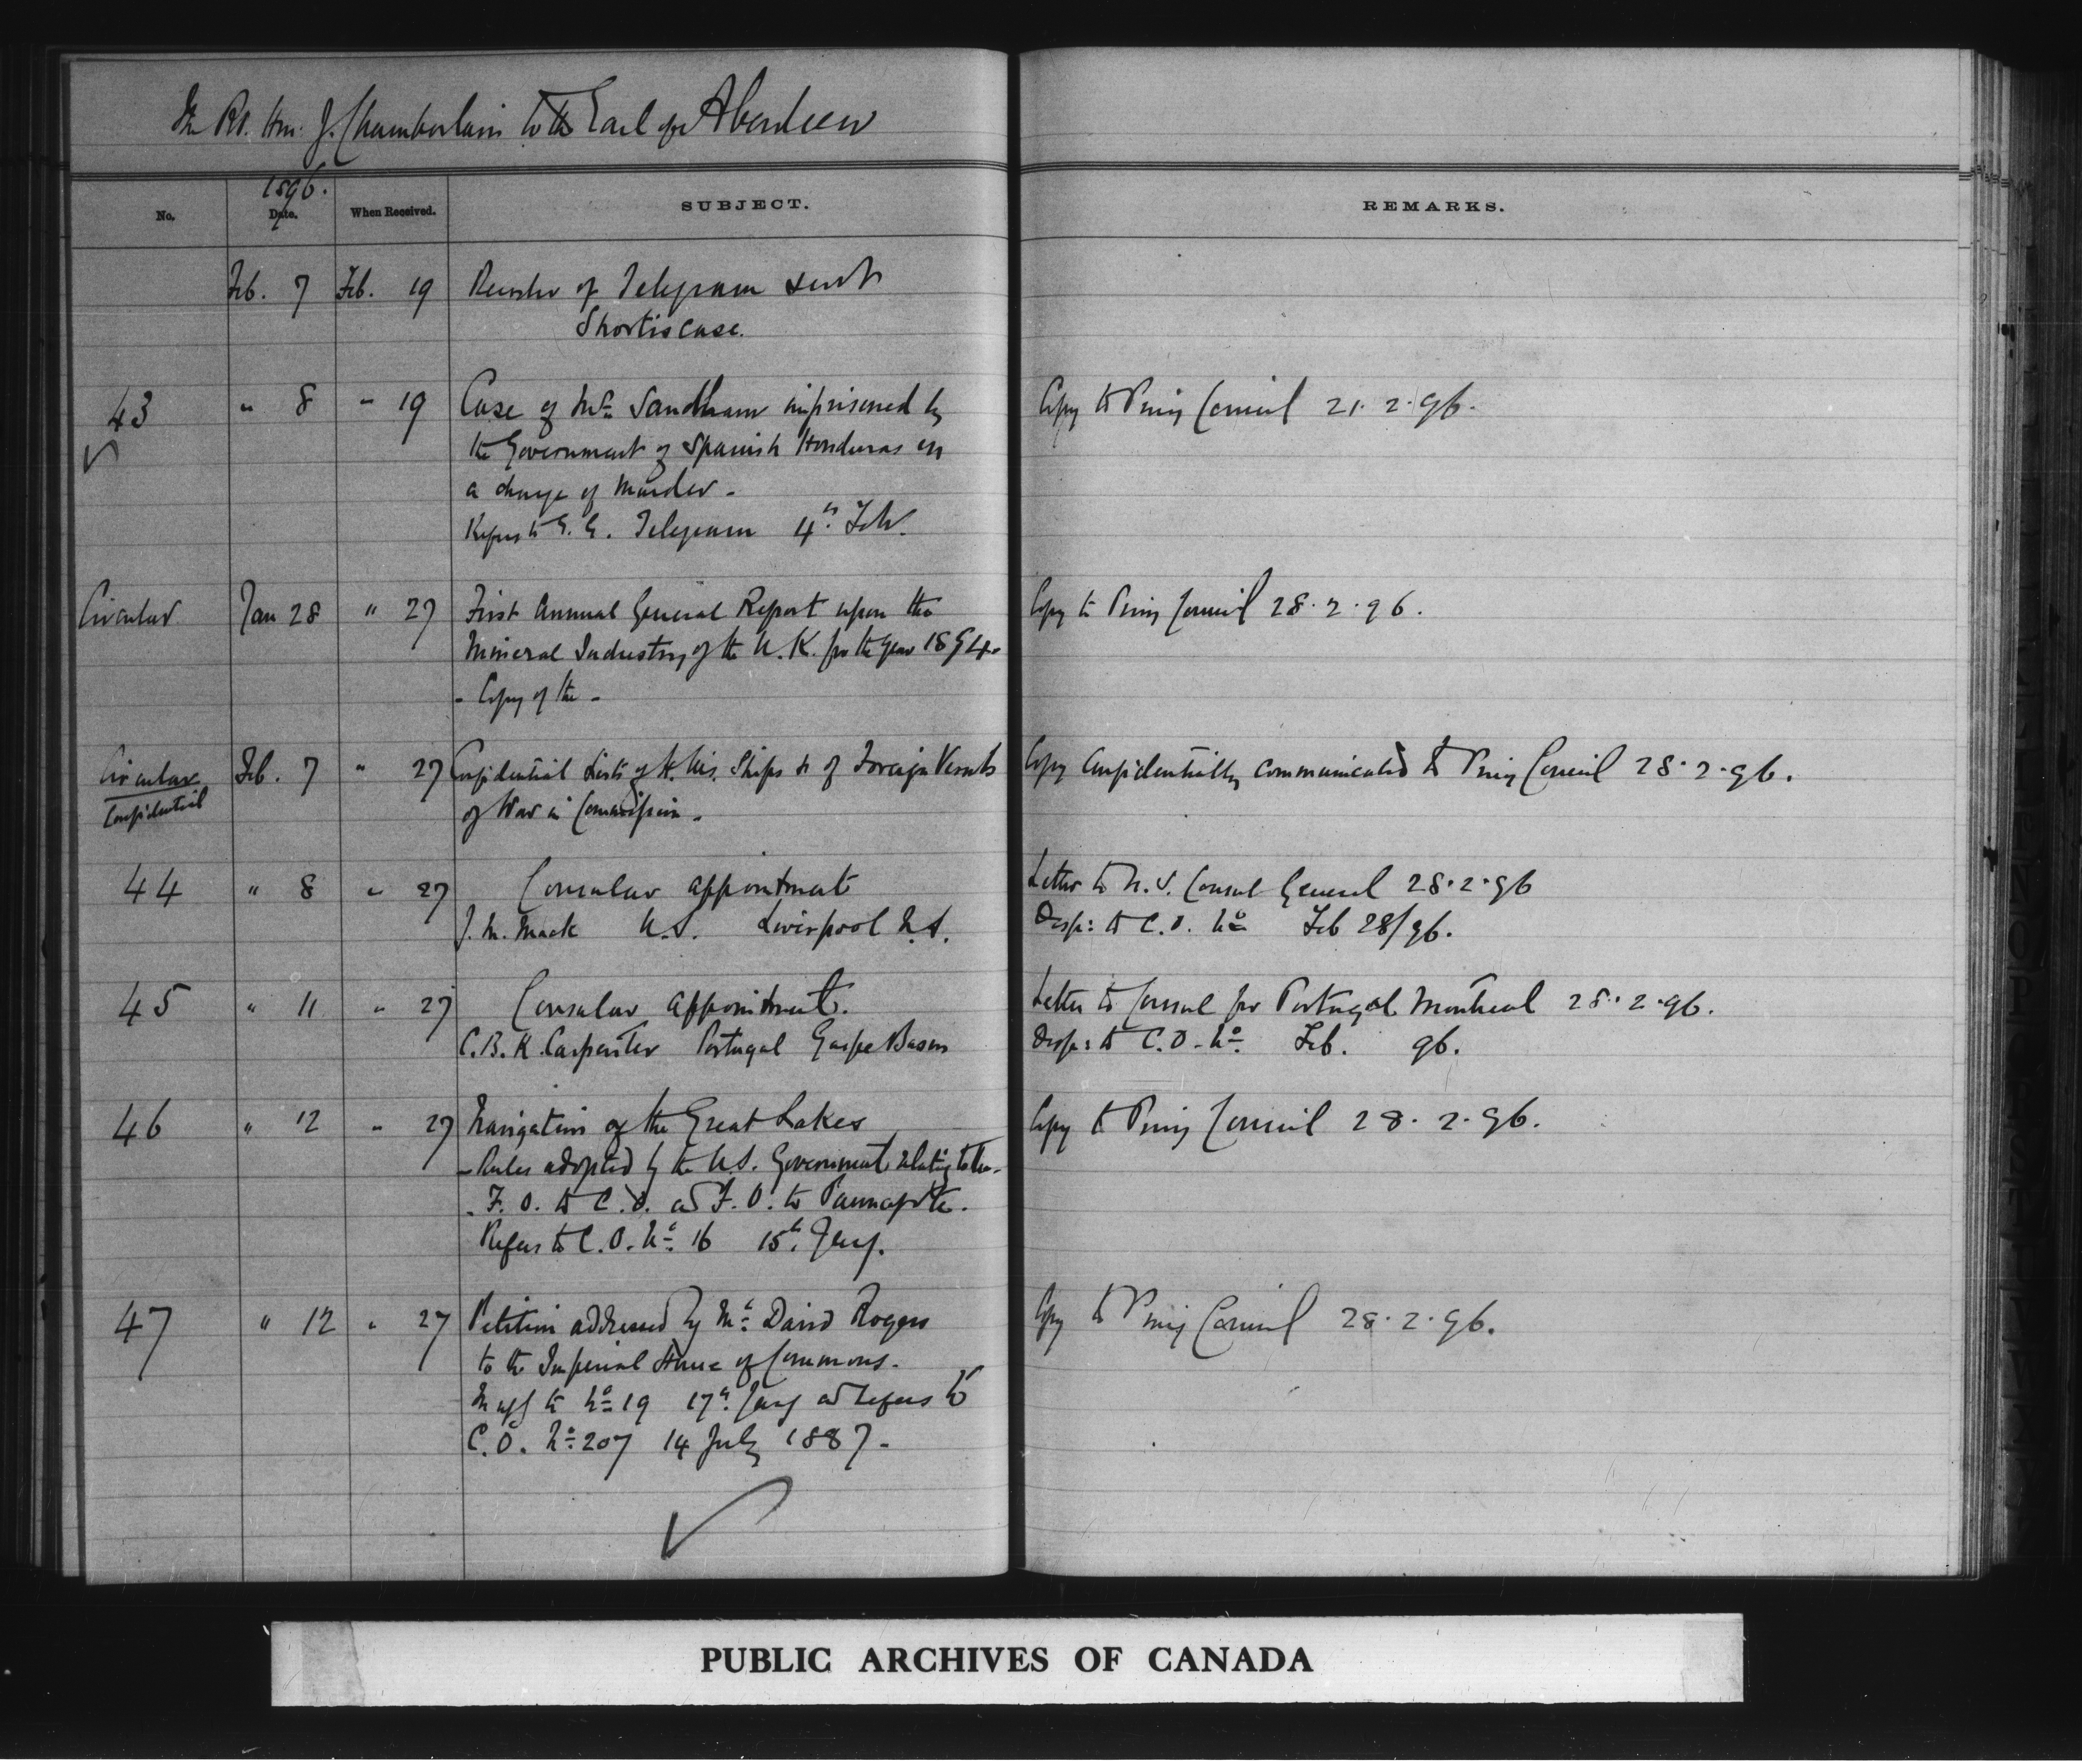 The Rt. Hon. J. Chamberlain to the Earl of Aberdeen
1896.
No. Date. When Received. SUBJECT. REMARKS.
Feb. 7 Feb. 19 of Telegram sent
Shortis case.
43 " 8 " 19 Case of Mr. Sandham imprisoned by Copy to Privy Council 21.2.96.
the Government of Spanish Honduras on
a charge of Murder -
Refers to G. G. Telegram 4th Feb.
Circular Jan 28 " 27 First Annual General Report upon the Copy to Privy Council 28.2.96.
Mineral Industry of the U.K. for the year 1894-
- Copy of the -
Circular Feb. 7 " 27 Confidential Lists of H. M. Ships & of Foreign Vessels Copy Confidentially communicated to Privy Council 28.2.96.
Confidential of War in Commission -
44 " 8 " 27 Consular appointment Letter to U.S. Consul General 28.2.96
J. M. Mack U.S. Liverpool N.S. Desp: to C.O. No Feb 28/96.
45 " 11 " 27 Consular appointment. Letter to Consul for Portugal Montreal 28.2.96.
C.B.K. Carpenter Portugal Gaspe Basin Desp: to C.O. No. Feb. 96.
46 " 12 " 27 Navigation of the Great Lakes Copy to Privy Council 28.2.96.
- Rules adopted by the U.S. Government relating to the -
- F.O. to C.O. and F.O. to Pauncefote.
Refers to C.O. No. 16 15th Jany.
47 " 12 " 27 Petition addressed by Mr. David Rogers Copy to Privy Council 28.2.96.
to the Imperial House of Commons -
to No. 19 17th Jany and refers to
C.O. No. 207 14 July 1887 -
PUBLIC ARCHIVES OF CANADA